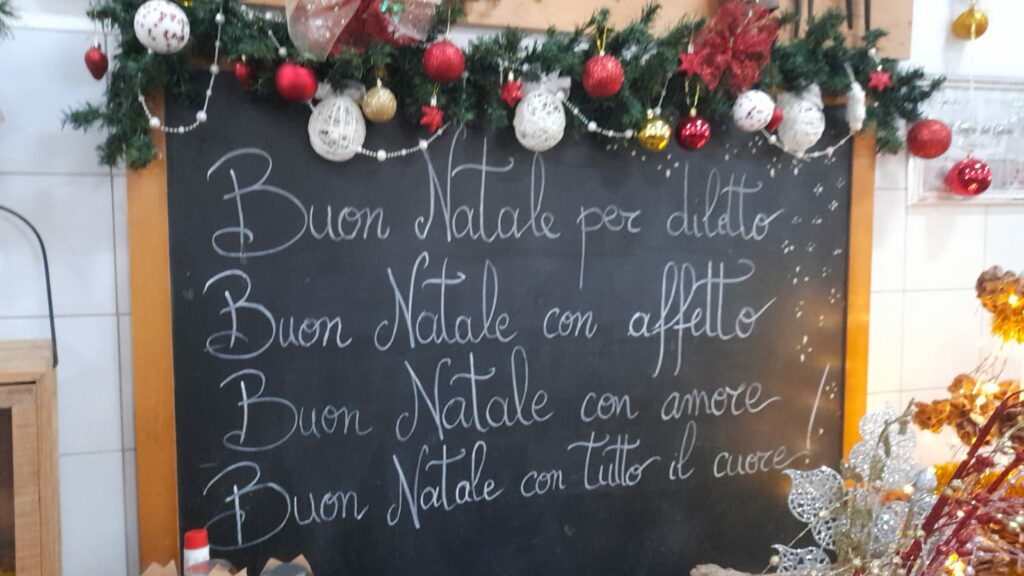 Buon Natale per diletto
Buon Natale con affetto
Buon Natale con amore
Buon Natale con tutto il cuore!